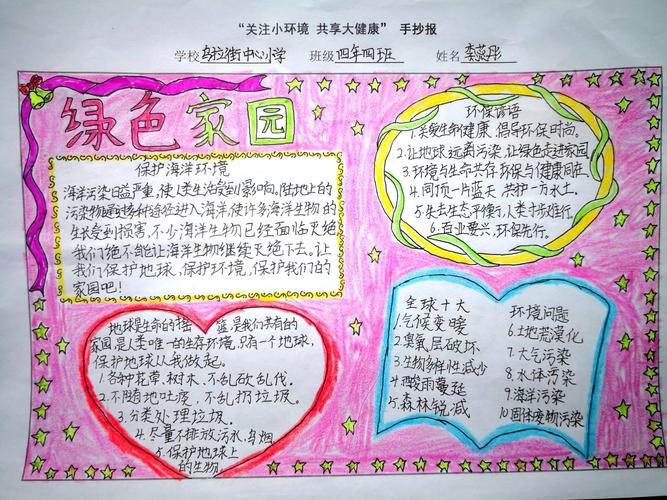 “关注小环境 共享大健康” 手抄报
学校 乌拉街中心小学 班级 四年四班 姓名 李蕊彤
绿色家园
保护海洋环境
海洋污染日益严重,使人类生活受到影响。陆地上的
污染物通过多种途径进入海洋,使许多海洋生物的
生长受到损害,不少海洋生物已经面临灭绝
我们绝不能让海洋生物继续灭绝下去。让
我们保护地球,保护环境,保护我们的
家园吧!
环保谚语
1.关爱生命健康 倡导环保时尚。
2.让地球远离污染,让绿色走进家园
3.环境与生命共存,环保与健康同在
4.同顶一片蓝天 共护一方水土。
5.失去生态平衡,人类寸步难行。
6.百业要兴,环保先行。
地球是生命的摇篮,是我们共有的
家园,是人类唯一的生存环境,只有一个地球,
保护地球从我做起。
1.各种花草、树木,不乱砍乱伐。
2.不随地吐痰,不乱扔垃圾。
3.分类处理垃圾。
4.尽量不排放污水、乌烟。
5.保护地球上
的生物。
全球十大环境问题
1.气候变暖
2.臭氧层破坏
3.生物多样性减少
4.酸雨蔓延
5.森林锐减
6.土地荒漠化
7.大气污染
8.水体污染
9.海洋污染
10.固体废物污染